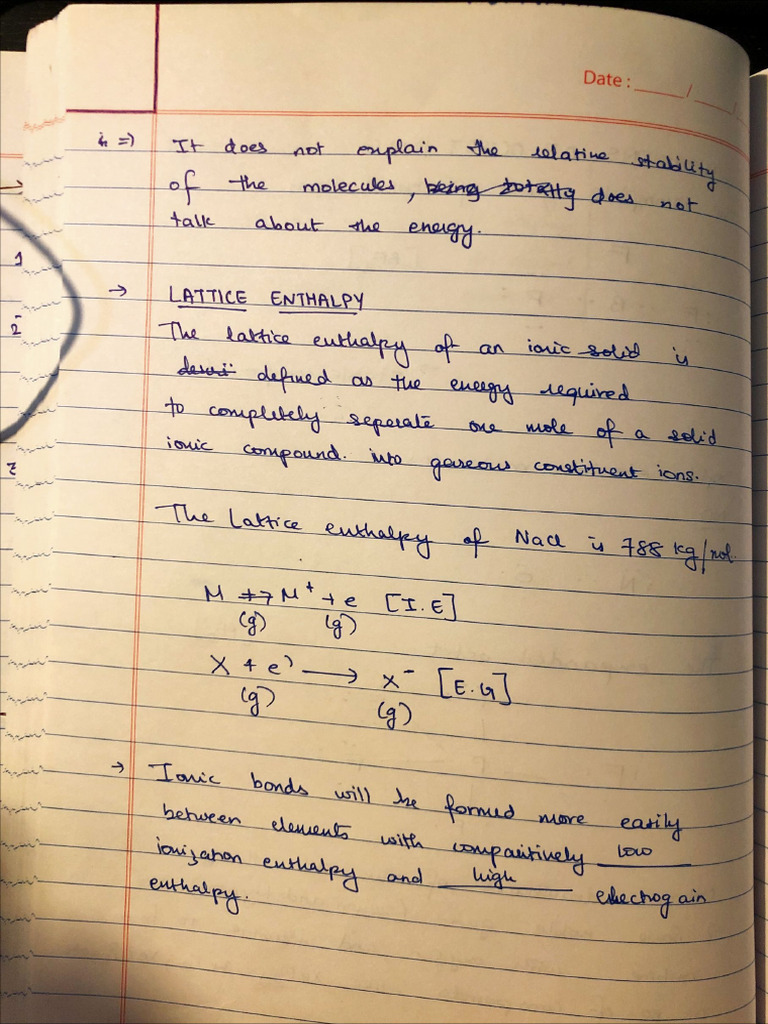 Date : ____/____/__
It does not explain the relative stability
of the molecules, being totally does not
talk about the energy.
→ LATTICE ENTHALPY
The lattice enthalpy of an ionic solid is
defined as the energy required
to completely seperate one mole of a solid
ionic compound. into gaseous constituent ions.
The Lattice enthalpy of NaCl is 788 kg/mol.
M → M⁺ + e [I.E]
(g) (g)
X + e⁾ → X⁻ [E.G]
(g) (g)
→ Ionic bonds will be formed more easily
between elements with comparitively low
ionization enthalpy and high electrogain
enthalpy.
1
2